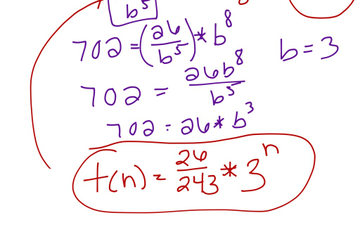 b⁵
702 = (26/b⁵) * b⁸
b = 3
702 = 26b⁸/b⁵
702 = 26 * b³
t(n) = 26/243 * 3ⁿ